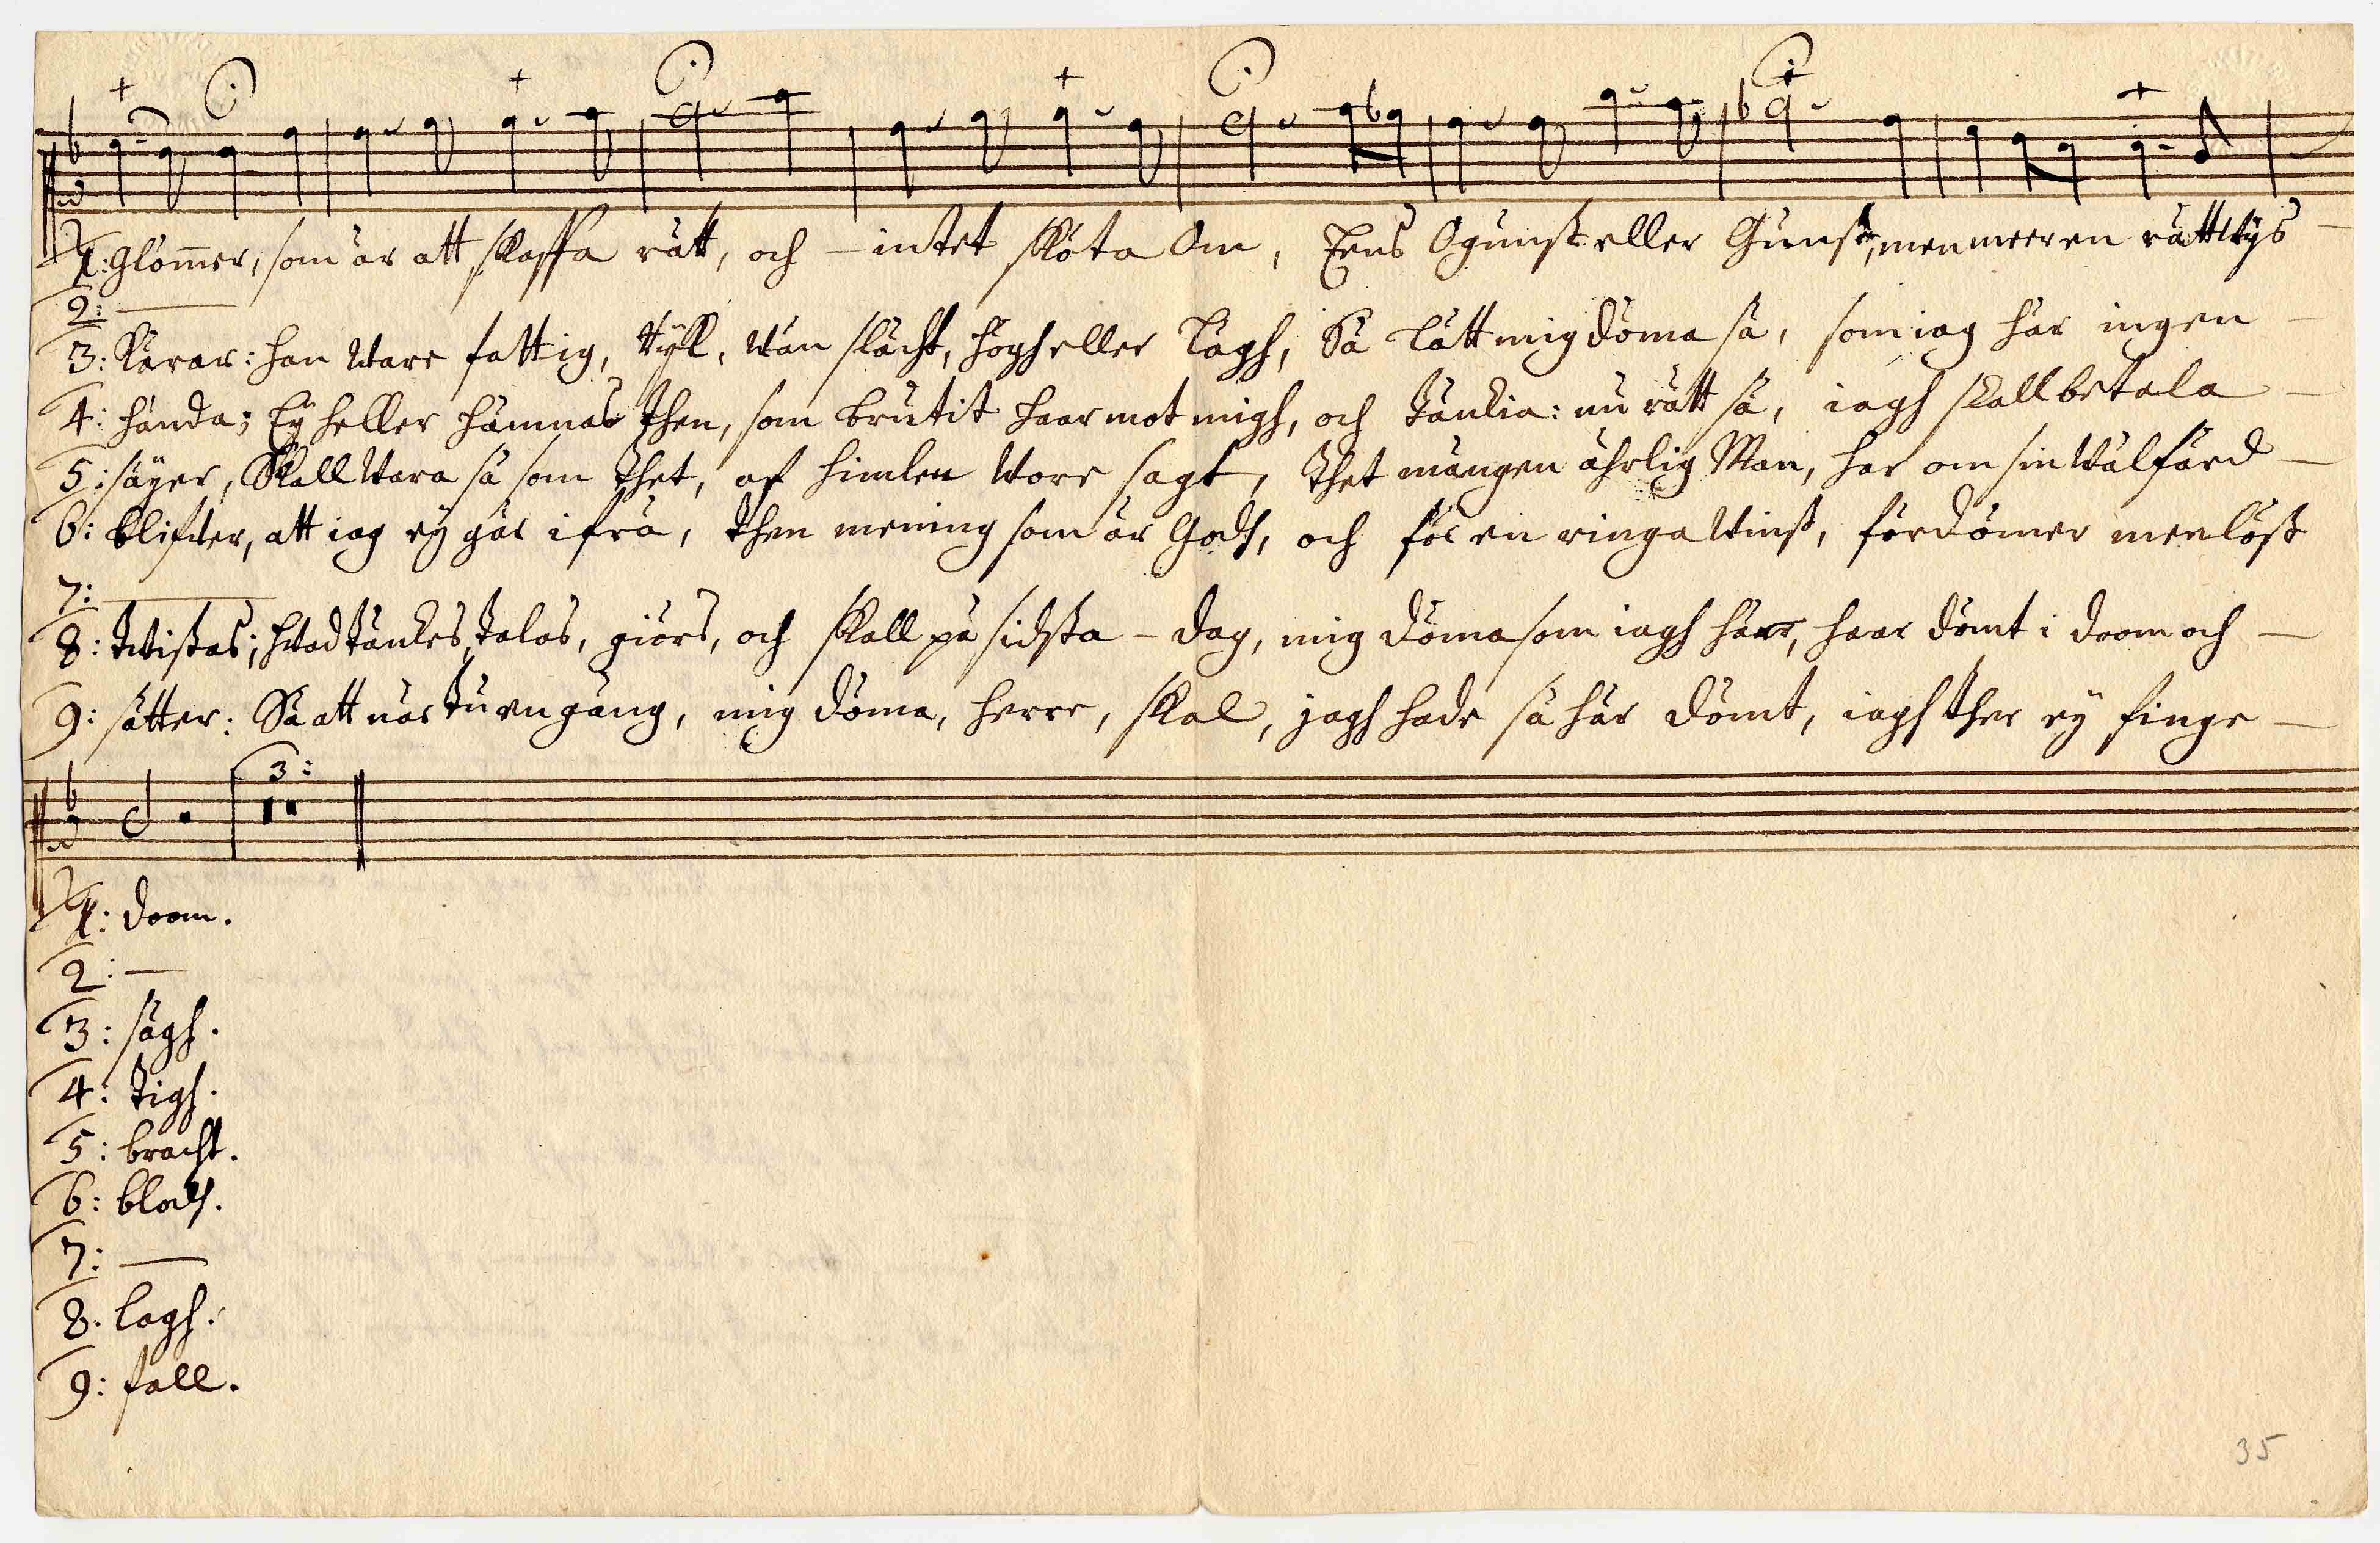 1: glömer, som är att skaffa rätt, och – intet sköta Om, Eens Ogunst eller Gunst, men meer en rättwys –
2: —
3: kärar: han ware fattig, ryk, wän slächt, högh eller lågh, Så lätt mig döma så, som iag här ingen –
4: hända; Ey heller hämnas then, som brutit haar mot migh, och tänkia: nu rätt så, iagh skall betala –
5: säyer, Skall wara så som thet, af himlen wore sagt, thet mången ährlig Man, har om sin wälfärd –
6: blifwer, att iag ey går ifrå, then mening som är Godh, och för en ringa winst, fördömer menlöst
7: —
8: twistas; hwad tänkes, talas, giörs, och skall på sidsta – dag, mig döma som iagh här, haar dömt i doom och –
9: sätter: Så att när tu en gång, mig döma, herre, skal, jagh hade så här dömt, iagh ther ey finge –
3:
1: doom.
2: —
3: sågh.
4: tigh.
5: bracht.
6: blodh.
7: —
8. lagh.
9: fall.
35